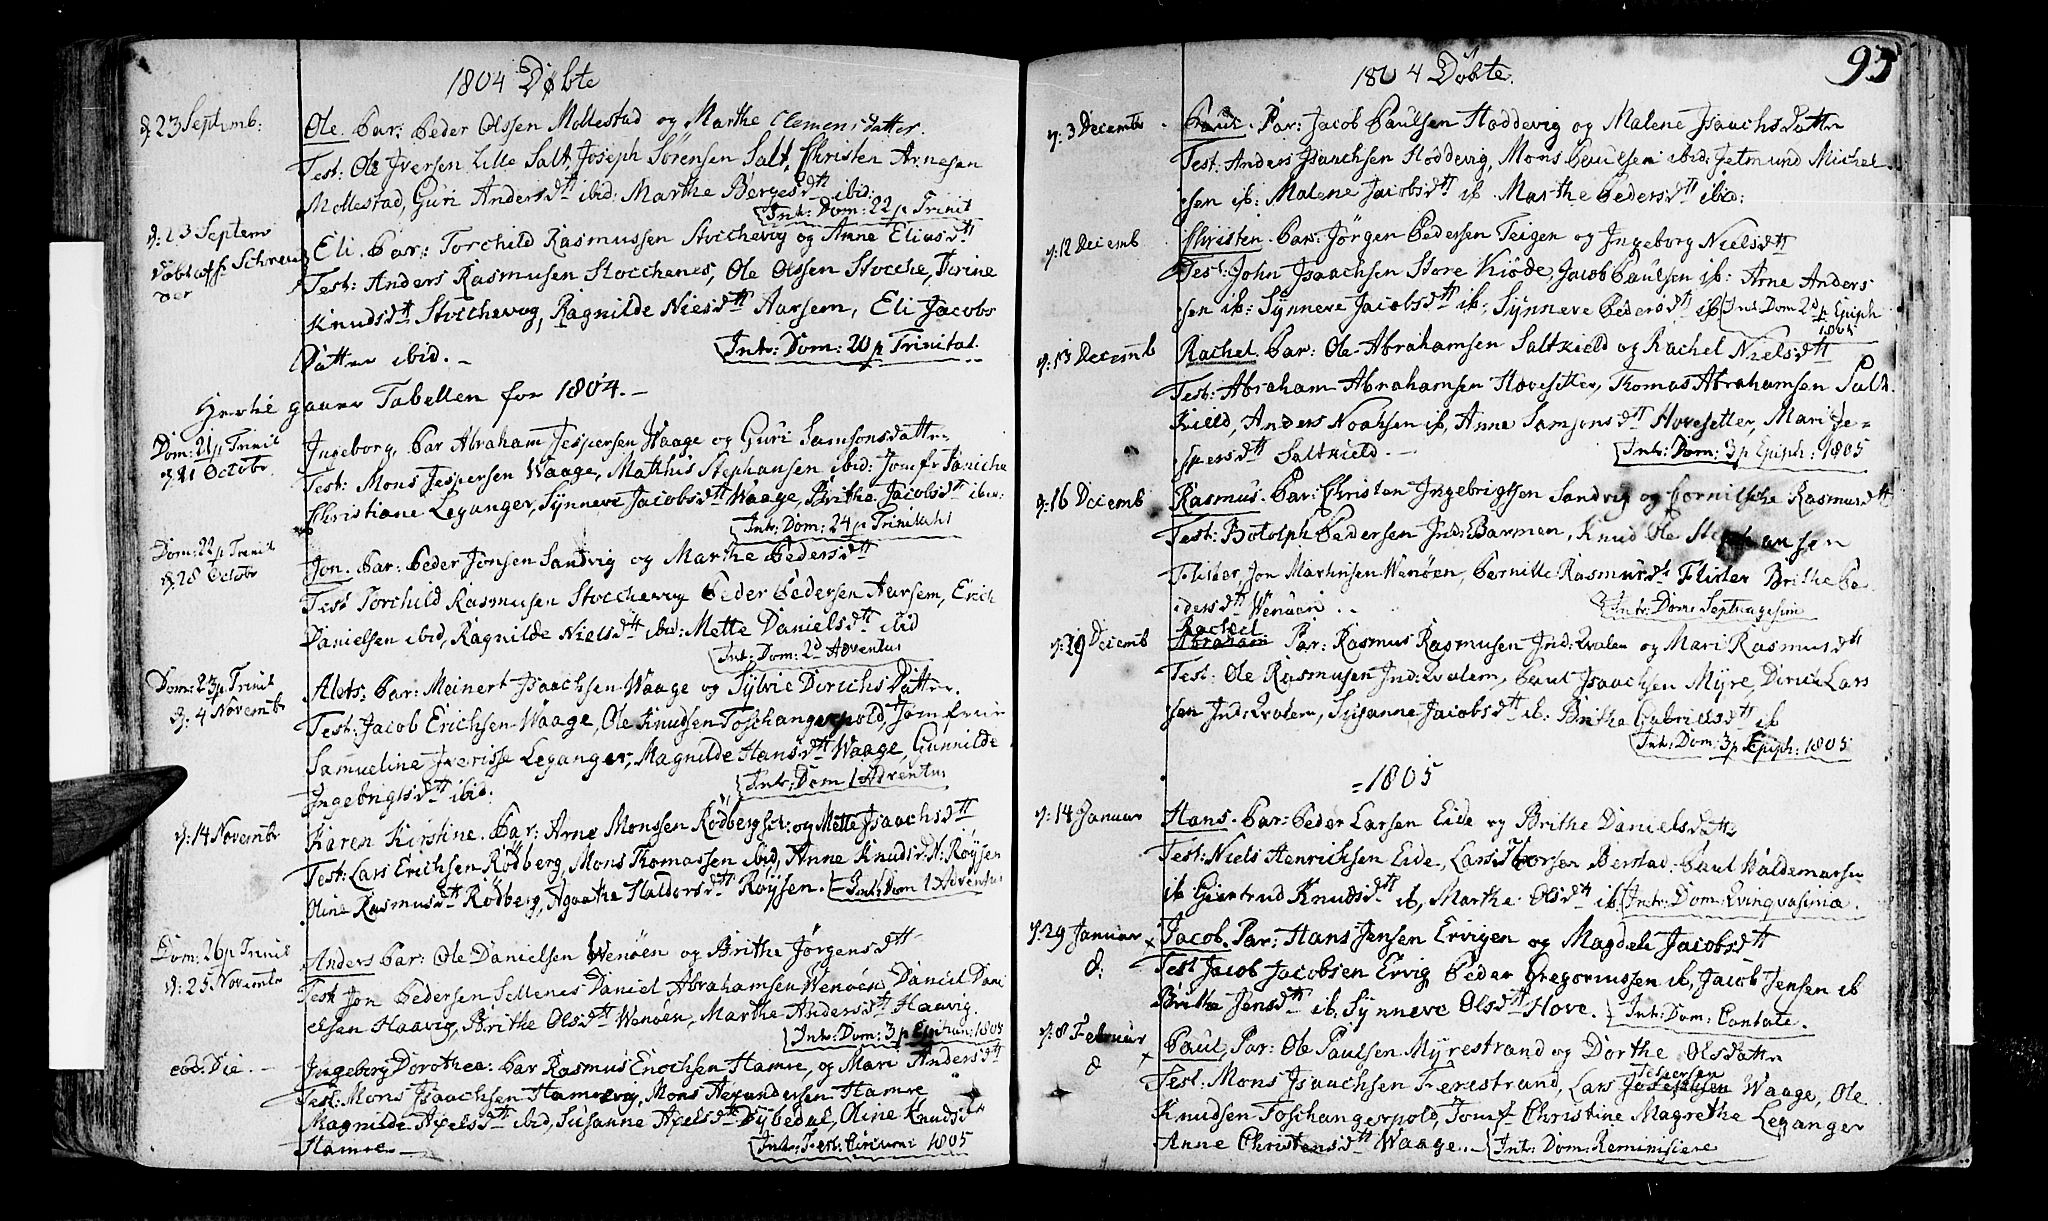 1804 Døbte
d: 23 Septemb:
Ole. Par: Peder Olssen Mollestad og Marthe Clemensdatter.
Test: Ole Iversen Lille Salt, Joseph Sørensen Salt, Christen Arnesen
Mollestad, Guri Andersdtt ibid: Marthe Børgesdtt ibid:
Intr: Dom: 22 p Trinit
d: 23 Septemb
døbt af Schreuder
Eli. Par: Torchild Rasmussen Stocchevig og Anne Eliasdtt
Test: Anders Rasmusen Stocchenes, Ole Olssen Stocche, Torine
Knudsdtt Stocchevig, Ragnilde Niesdtt Aarsem, Eli Jacobs
Datter ibid. -
Intr: Dom: 20 p Trinitat.
Hertil gaaer Tabellen for 1804. -
Dom: 21 p Trinit
d: 21 Octobr.
Ingeborg, Par Abraham Jespersen Waage og Guri Samsonsdatter
Test: Mons Jespersen Waage, Mathis Stephansen ibid: Jomfr Daniche
Christiane Leganger, Synneve Jacobsdtt Waage, Brithe Jacobsdtt ibid:
Intr: Dom: 24 p Trinitatis
Dom: 22 p Trinit
d: 28 Octobr
Jon. Par: Peder Jonsen Sandvig og Marthe Pedersdtt
Test Torchild Rasmusen Stocchevig Peder Pedersen Aarsem, Erich
Danielsen ibid, Ragnilde Nielsdtt ibid: Mette Danielsdtt ibid
Intr: Dom: 2d Adventus
Dom: 23 p Trinit
d: 4 Novembr
Alets: Par: Meinert Isaachsen Waage og Sylvie Dirichs Datter.
Test: Jacob Erichsen Waage, Ole Knudsen Toschangerpold, Jomfrue
Samueline Leganger, Magnilde Hansdtt Waage, Gunnilde
Ingebrigtsdtt ibid:
Intr: Dom 1 Adventus
d: 14 Novembr
Karen Kirstine. Par: Arne Monssen Rødberg og Mette Isaachsdtt
Test: Lars Erichsen Rødberg, Mons Thomassen ibid, Anne Knudsdtt Røysen
Oline Rasmusdtt Rødberg, Agaathe Haldorsdtt Røysen.
Intr: Dom 1 Adventus
Dom: 26 p Trinit
d: 25 Novembr
Anders Par: Ole Danielsen Wenøen og Brithe Jørgensdtt
Test Jon Pedersen Sellenes Daniel Abrahamsen Wenøen, Daniel Dani
elsen Haavig, Brithe Olsdtt Wenøen, Marthe Andersdtt Haavig.
Intr: Dom: 3 p Epiphan: 1805
eod: Die. -
Ingeborg Dorothea. Par Rasmus Enochsen Hamre, og Mari Andersdtt
Test: Mons Isaachsen Hamrevig, Mons Alexandersen Hamre
Magnilde Axelsdtt ibid, Susanne Axelsdtt Dybedal, Oline Knudsdtt
Hamre -
Intr: Fest: 1805
1804 Døbte.
95
d: 3 Decembr
Paul. Par: Jacob Paulsen Hoddevig og Malene Isaachsdatter
Test: Anders Isaachsen Hoddevig, Mons Paulsen ibid, Jetmund Michel
sen ib: Malene Jacobsdtt ib Marthe Pedersdtt ibid:
d: 12 Decemb
Christen. Par: Jørgen Pedersen Teigen og Ingeborg Nielsdtt
Test: John Isaachsen Store Kiøde, Jacob Paulsen ib: Arne Anders
sen ib: Synneve Jacobsdtt ib: Synneve Pedersdtt ib
Intr: Dom 2d p Epiph
1805
d: 13 Decemb
Rachel. Par: Ole Abrahamsen Saltkield og Rachel Nielsdtt
Test: Abraham Abrahamsen Hovesetter, Thomas Abrahamsen Salt
kield, Anders Noahsen ib, Anne Samsonsdtt Hovesetter, Mari Je-
spersdtt Saltkield. -
Intr: Dom: 3 p Epiph: 1805
d: 16 Decemb
Rasmus. Par: Christen Ingebrigtsen Sandvig og Pernilsche Rasmusdtt
Test: Botolph Pedersen Ind: Barmen, Knud Ole Stephansen
Flister, Jon Mathisen Wenøen, Pernille Rasmusdtt Flister Brithe Pe
dersdtt Wenøen. .
Intr: Dom: Septuagesim
d: 29 Decemb
Rachel
Abraham Par: Rasmus Rasmusen Ind: Qvalen og Mari Rasmusdtt
Test: Ole Rasmusen Ind: Qvalem, Paul Isaachsen Myre, Dirich Lars
sen Ind: Qvalem, Susanne Jacobsdtt ib: Brithe Gabrielsdtt ib
Intr: Dom: 3 p Epiph: 1805
=1805
d: 14 Januar
Hans. Par: Peder Larsen Eide og Brithe Danielsdattr
Test: Niels Henrichsen Eide, Lars Berstad. Paul Waldemarsen
ib Giertrud Knudsdtt ib, Marthe Olsdtt ib
Intr: Dom: Qvinqvasimæ.
d: 29 Januar
d:
Jacob. Par: Hans Jensen Ervigen og Magdeli Jacobsdtt
Test Jacob Jacobsen Ervig Peder Gregoriussen ib, Jacob Jensen ib
Brithe Jensdtt ib, Synneve Olsdtt Hove.
Intr: Dom: Cantate.
d: 8 Februar
d
Paul, Par: Ole Paulsen Myrestrand og Dorthe Olsdatter
Test: Mons Isaachsen Ferestrand, Lars Jespersen Waage, Ole
Knudsen Toschangerpold, Jomf Christine Magrethe Leganger
Anne Christensdtt Waage. -
Intr: Dom: Reminiscere